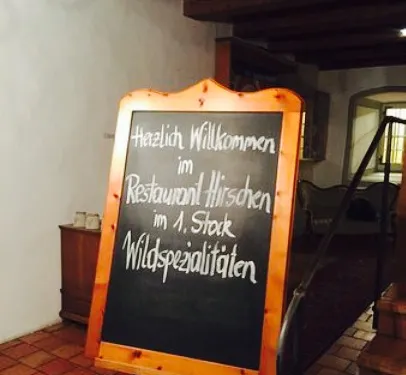 Herzlich Willkommen
im
Restaurant Hirschen
im 1. Stock
Wildspezialitäten